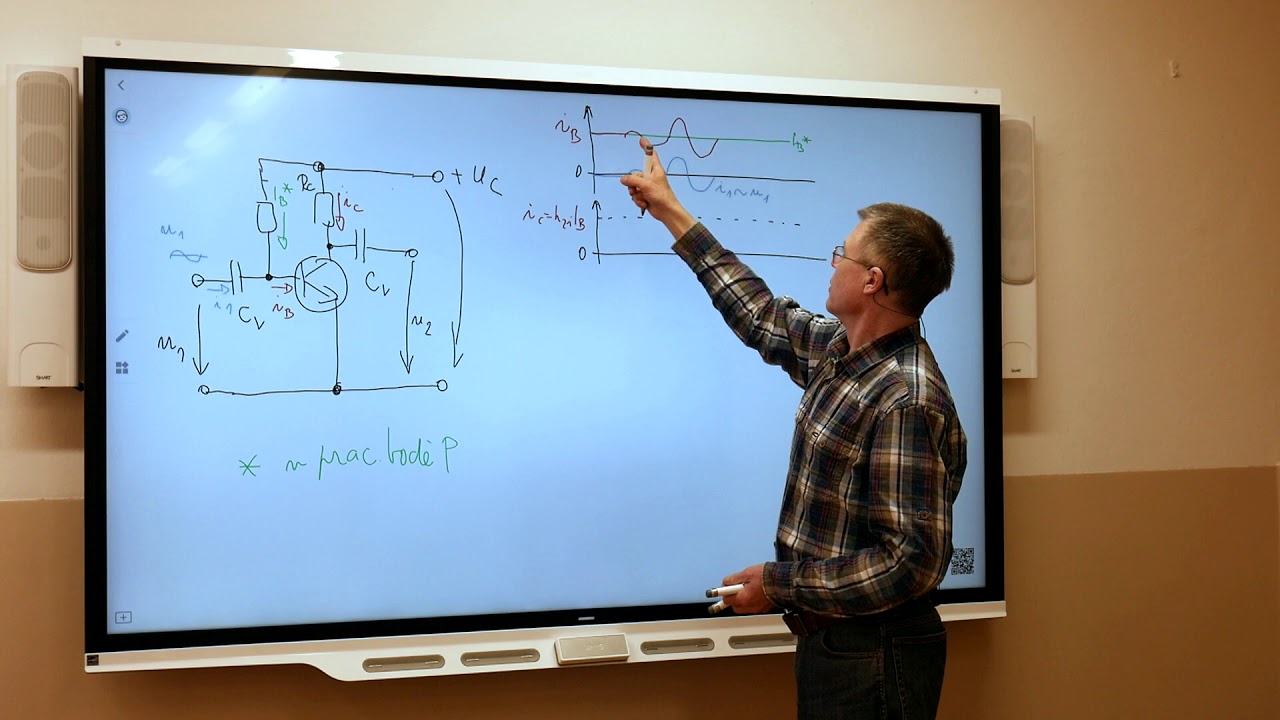 i_B
I_B*
0
i_1 ~ u_1
i_C = h_21 I_B
0
R_C
+ U_C
I_B*
i_C
u_1
i_1
C_V
i_B
C_V
u_1
u_2
* v prac. bodě P
SMART
SMART